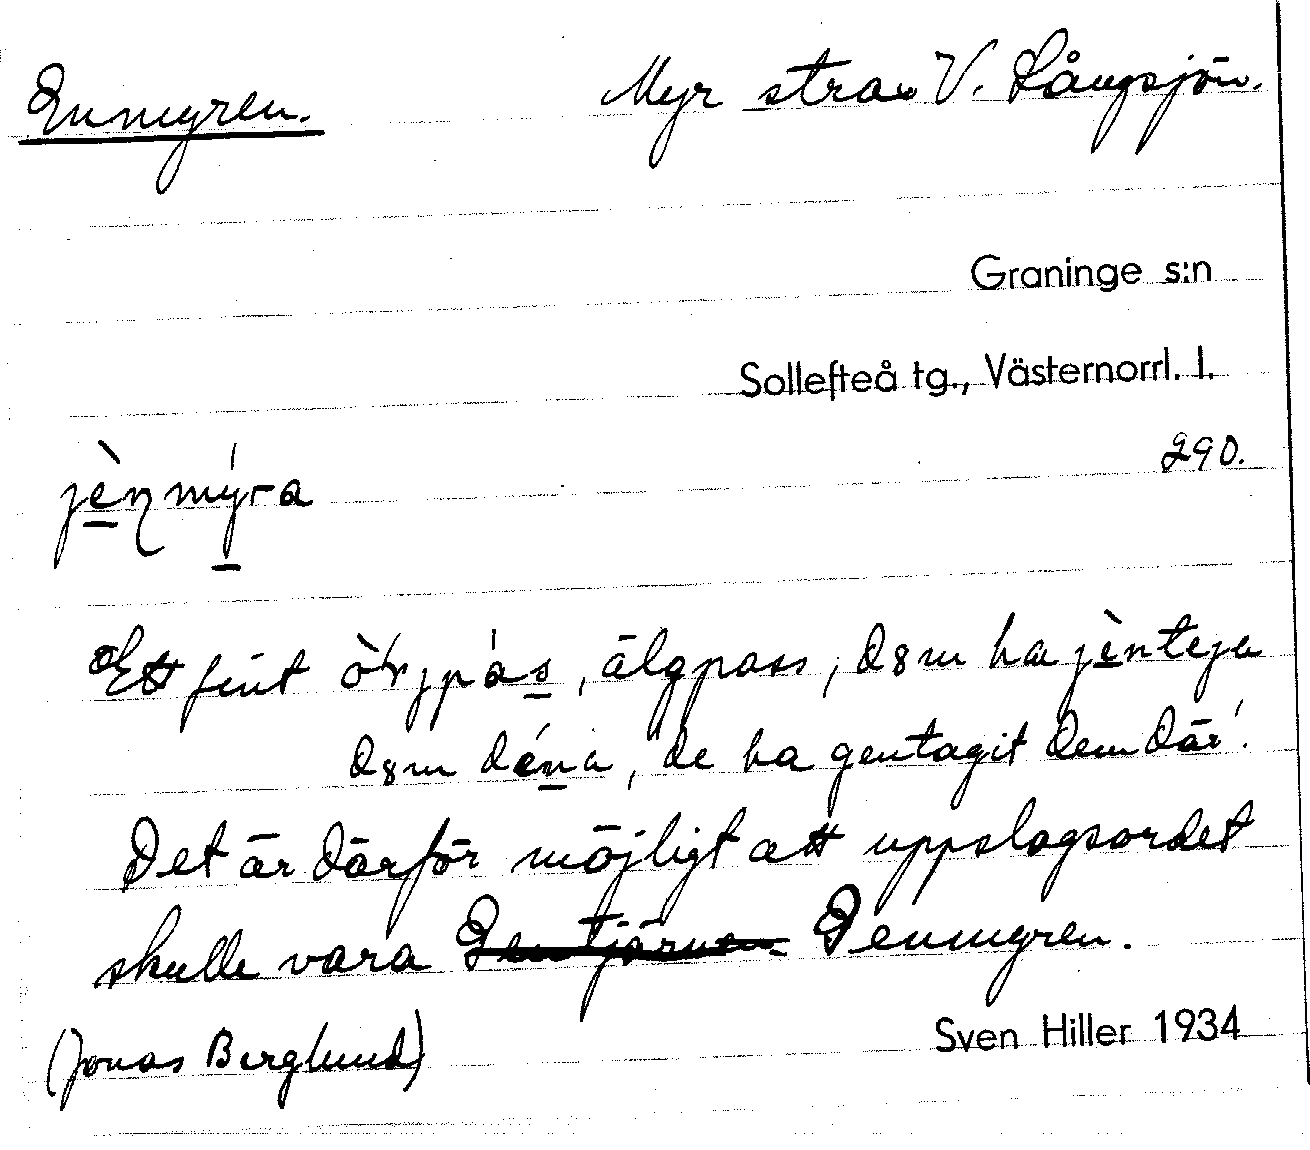 Enmyren. Myr strax V. Långsjön.
Graninge s:n
Sollefteå tg., Västernorrl. l.
290.
jènmýra
Ett fint , älgpass, ha jènteja
, de ha gentagit dem där!
Det är därför möjligt att uppslagsordet
skulle vara Gentjärnen Genmyren.
(Jonas Berglund) Sven Hiller 1934